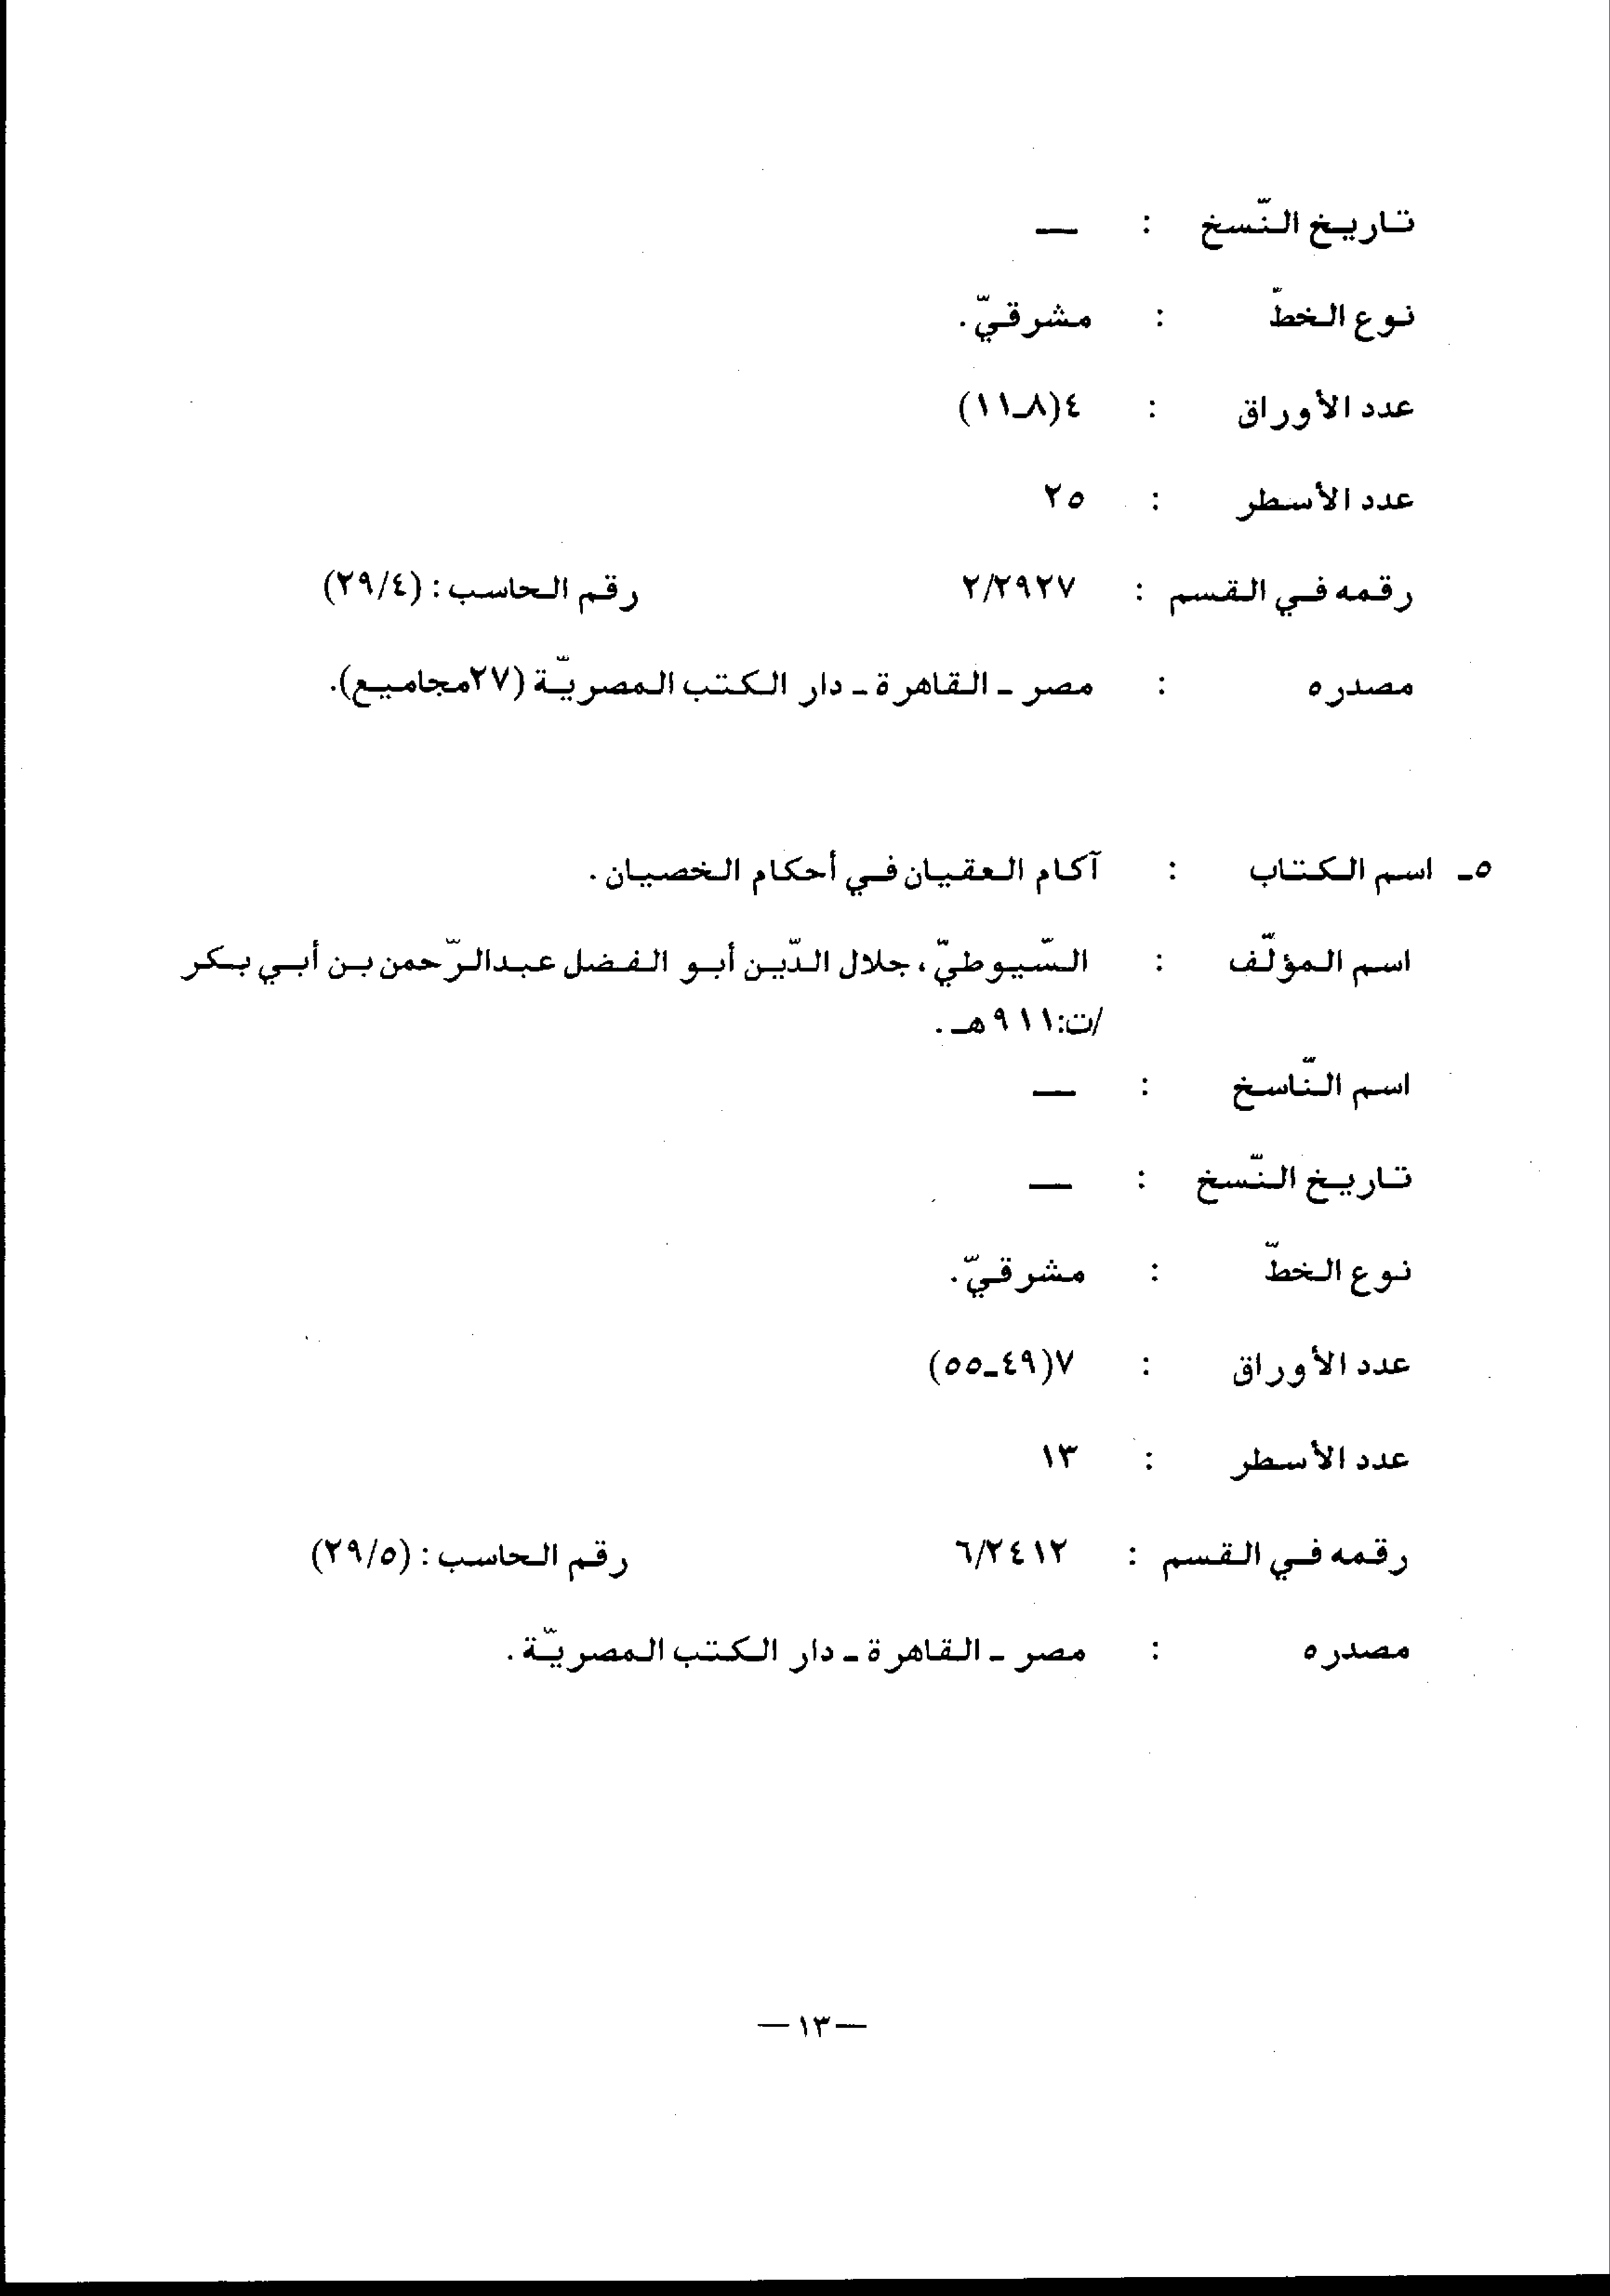 تاريخ النّسخ : —
نوع الخطّ : مشرقيّ.
عدد الأوراق : ٤(٨-١١)
عدد الأسطر : ٢٥
رقمه في القسم : ٢/٢٩٢٧ رقم الحاسب: (٢٩/٤)
مصدره : مصر - القاهرة - دار الكتب المصريّة (٢٧مجاميع).
٥- اسم الكتاب : آكام العقيان في أحكام الخصيان.
اسم المؤلّف : السّيوطيّ، جلال الدّين أبو الفضل عبدالرّحمن بن أبي بكر
/ت:٩١١هـ.
اسم النّاسخ : —
تاريخ النّسخ : —
نوع الخطّ : مشرقيّ.
عدد الأوراق : ٧(٤٩-٥٥)
عدد الأسطر : ١٣
رقمه في القسم : ٦/٢٤١٢ رقم الحاسب: (٢٩/٥)
مصدره : مصر - القاهرة - دار الكتب المصريّة.
— ١٣ —